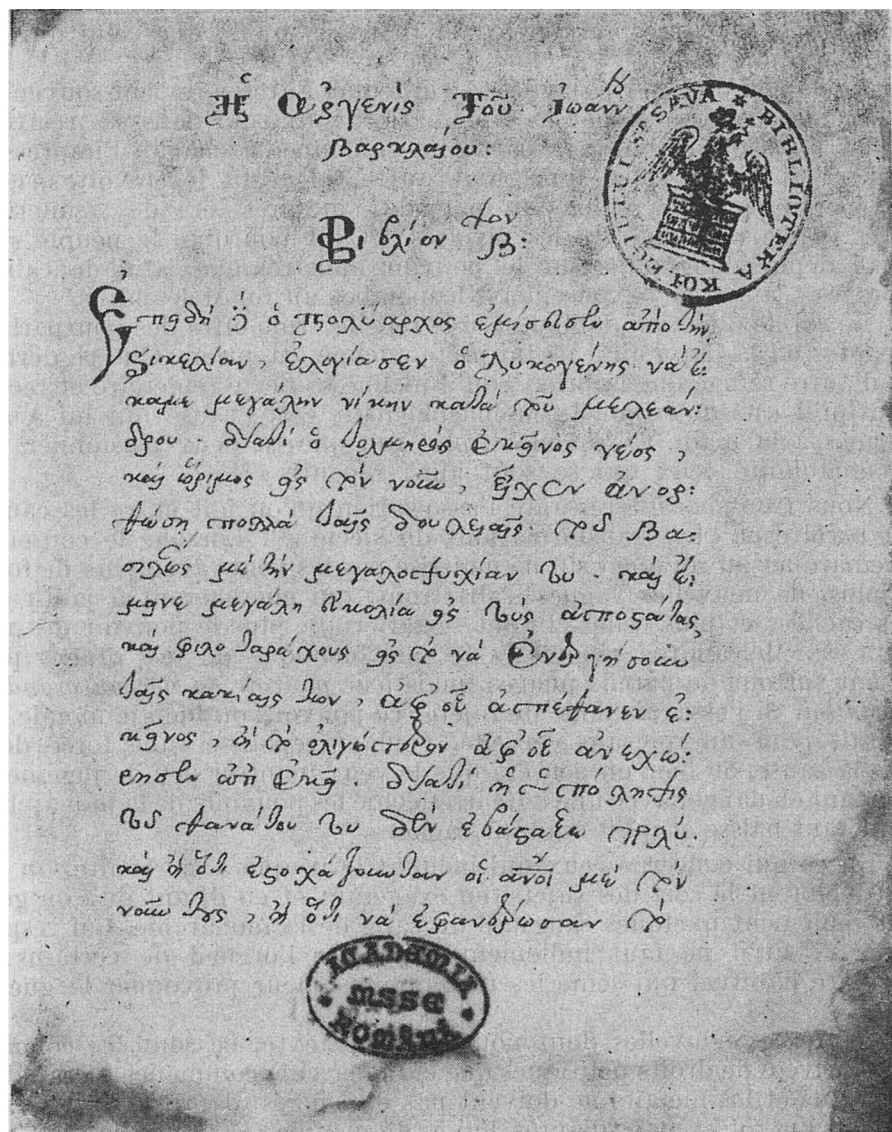 Ἡ Ἀργενὶς Τοῦ Ἰωάνν
Βαρκλαΐου:
Βιβλίον βʹ τον:
Ἐπειδὴ ὁ Πολύαρχος ἐμίσευσεν ἀπὸ τὴν
Σικελίαν, ἐλογίασεν ὁ Λυκογένης νὰ ἔ:
καμε μεγάλην νίκην κατὰ τοῦ Μελεάν:
δρου. διατὶ ὁ τολμηρὸς ἐκεῖνος νέος,
καὶ ὥριμος εἰς τὸν νοῦν, εἶχεν ἀνορ:
θώσῃ πολλὰ ταῖς δουλειαῖς τοῦ βα:
σιλέως μὲ τὴν μεγαλοψυχίαν του. καὶ ἔ:
μεινε μεγάλη εὐκολία εἰς τοὺς ἀποστάτας,
καὶ φιλοταράχους εἰς τὸ νὰ ἐνεργήσουν
ταῖς κακίαις των, ἀφ' οὗ ἀπέθανεν ἐ:
κεῖνος, ἢ τὸ ὀλιγώτερον ἀφ' οὗ ἀνεχώ:
ρησεν ἀπ' ἐκεῖ. διατὶ ἡ ὑπόληψις
τοῦ θανάτου του δὲν ἐβάσταξεν πολύ.
καὶ ἢ ὅτι ἐστοχάζουνταν οἱ ἄνοι μὲ τὸν
νοῦν τους, ἢ ὅτι νὰ ἐφανέρωσαν τὸ
BIBLIOTEKA KOLEGIULUI ST SAVA
ACADEMIA
MSSE
ROMÂNĂ